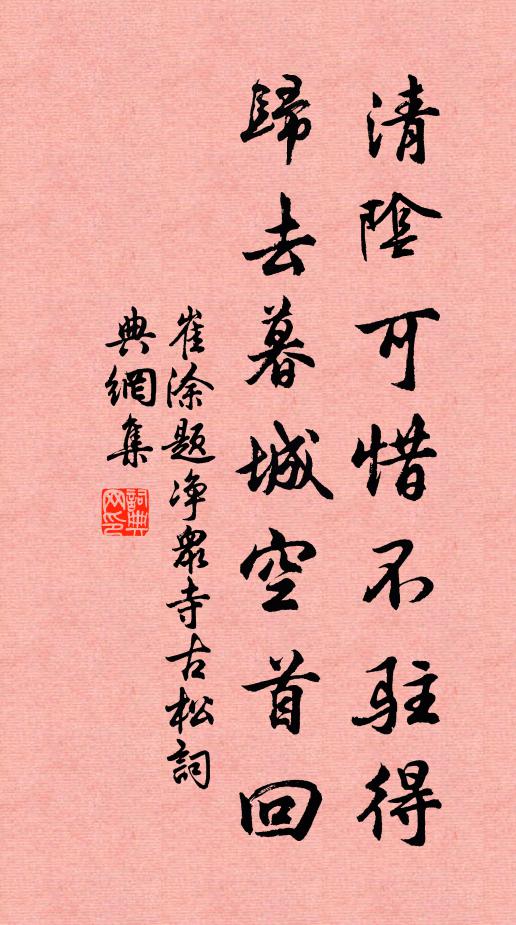 清陰可惜不駐得
歸去暮城空首回
崔涂題净眾寺古松詞
典網集
詞典網印